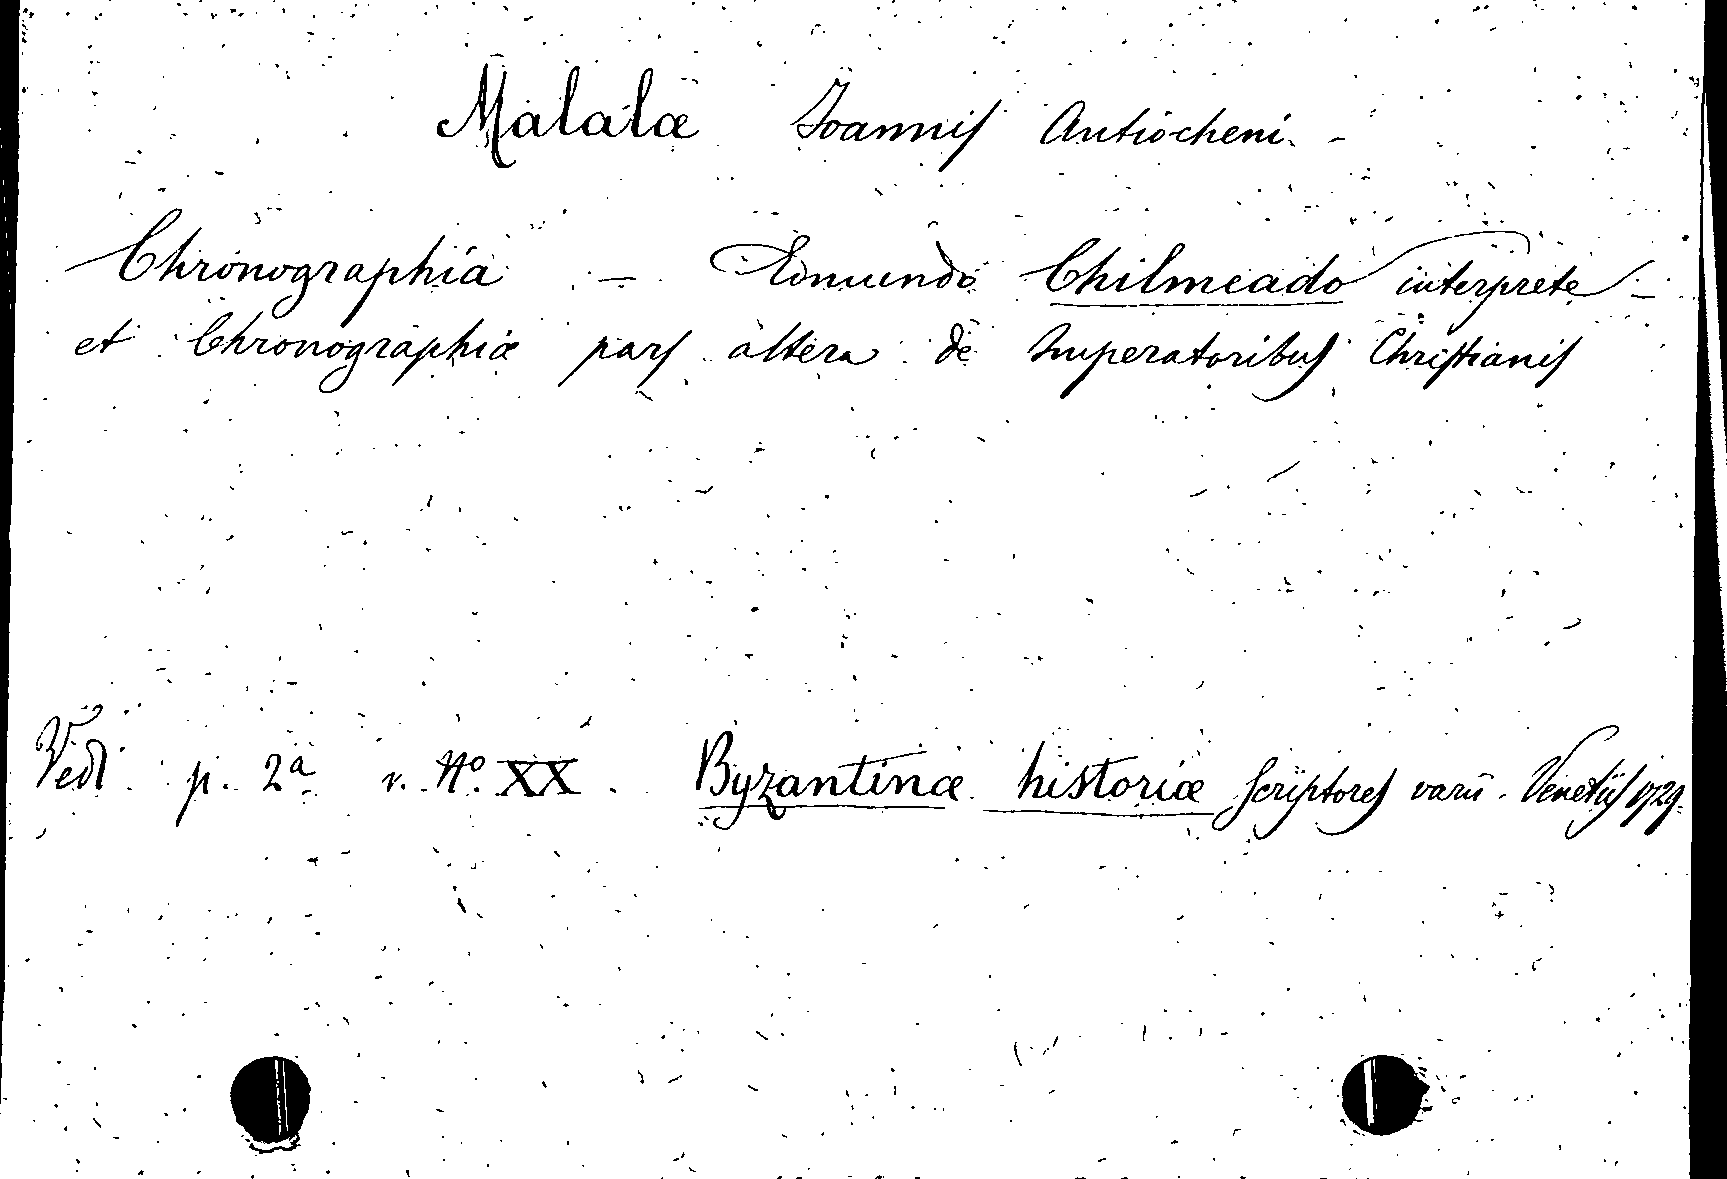 Malalæ Joannis Antiocheni. -
Chronographia - Edmundo Chilmeado interprete -
et Chronographiæ pars altera de Imperatoribus Christianis
Vedi p. 2ª v. Nº XX. Byzantinæ historiæ scriptores varii. Venetiis 1729.